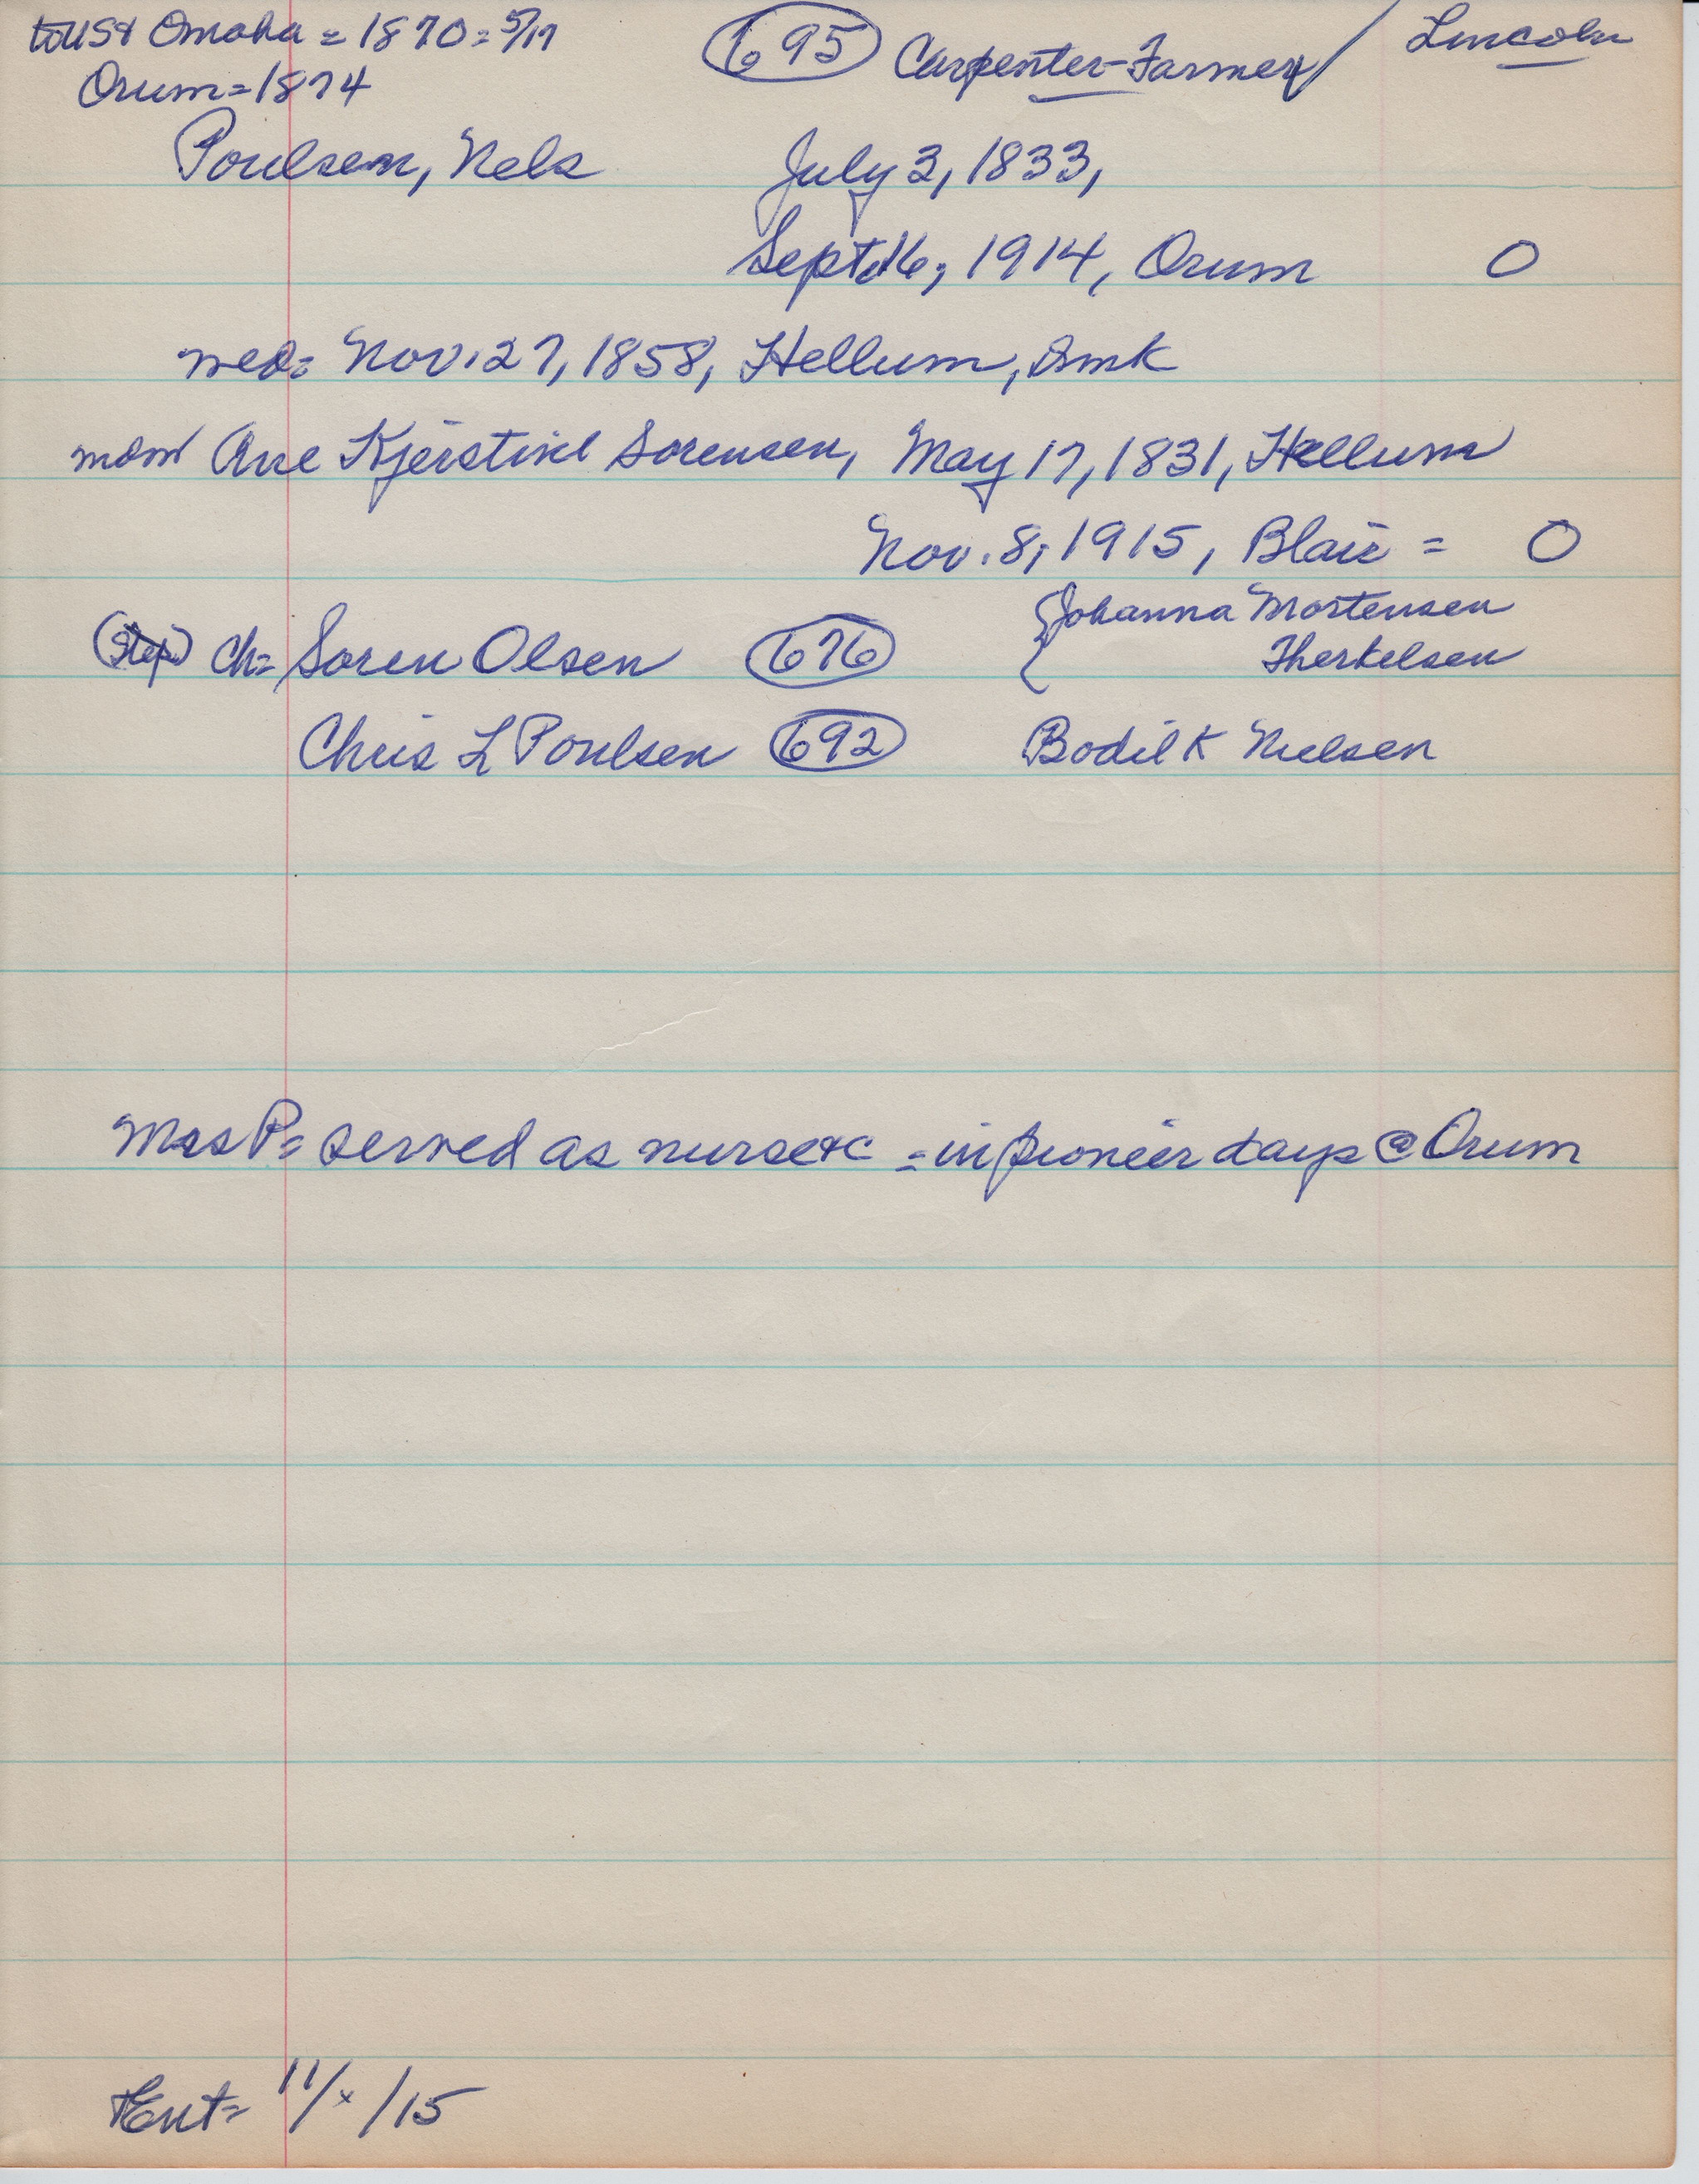 to US & Omaha = 1870 = 5/17 (695) Carpenter-Farmer / Lincoln
Orum = 1874
Poulsen, Nels July 3, 1833,
Sept 16, 1914, Orum O
wed = Nov. 27, 1858, Hellum, Dmk
Ane Kjerstine Sorensen, May 17, 1831, Hellum
Nov. 8, 1915, Blair = O
(Step) Ch = Soren Olsen (676) { Johanna Mortensen
Therkelsen
Chris L Poulsen (692) Bodil K Nielsen
Mrs P = served as nurse etc = in pioneer days @ Orum
Ent = 11/x/15